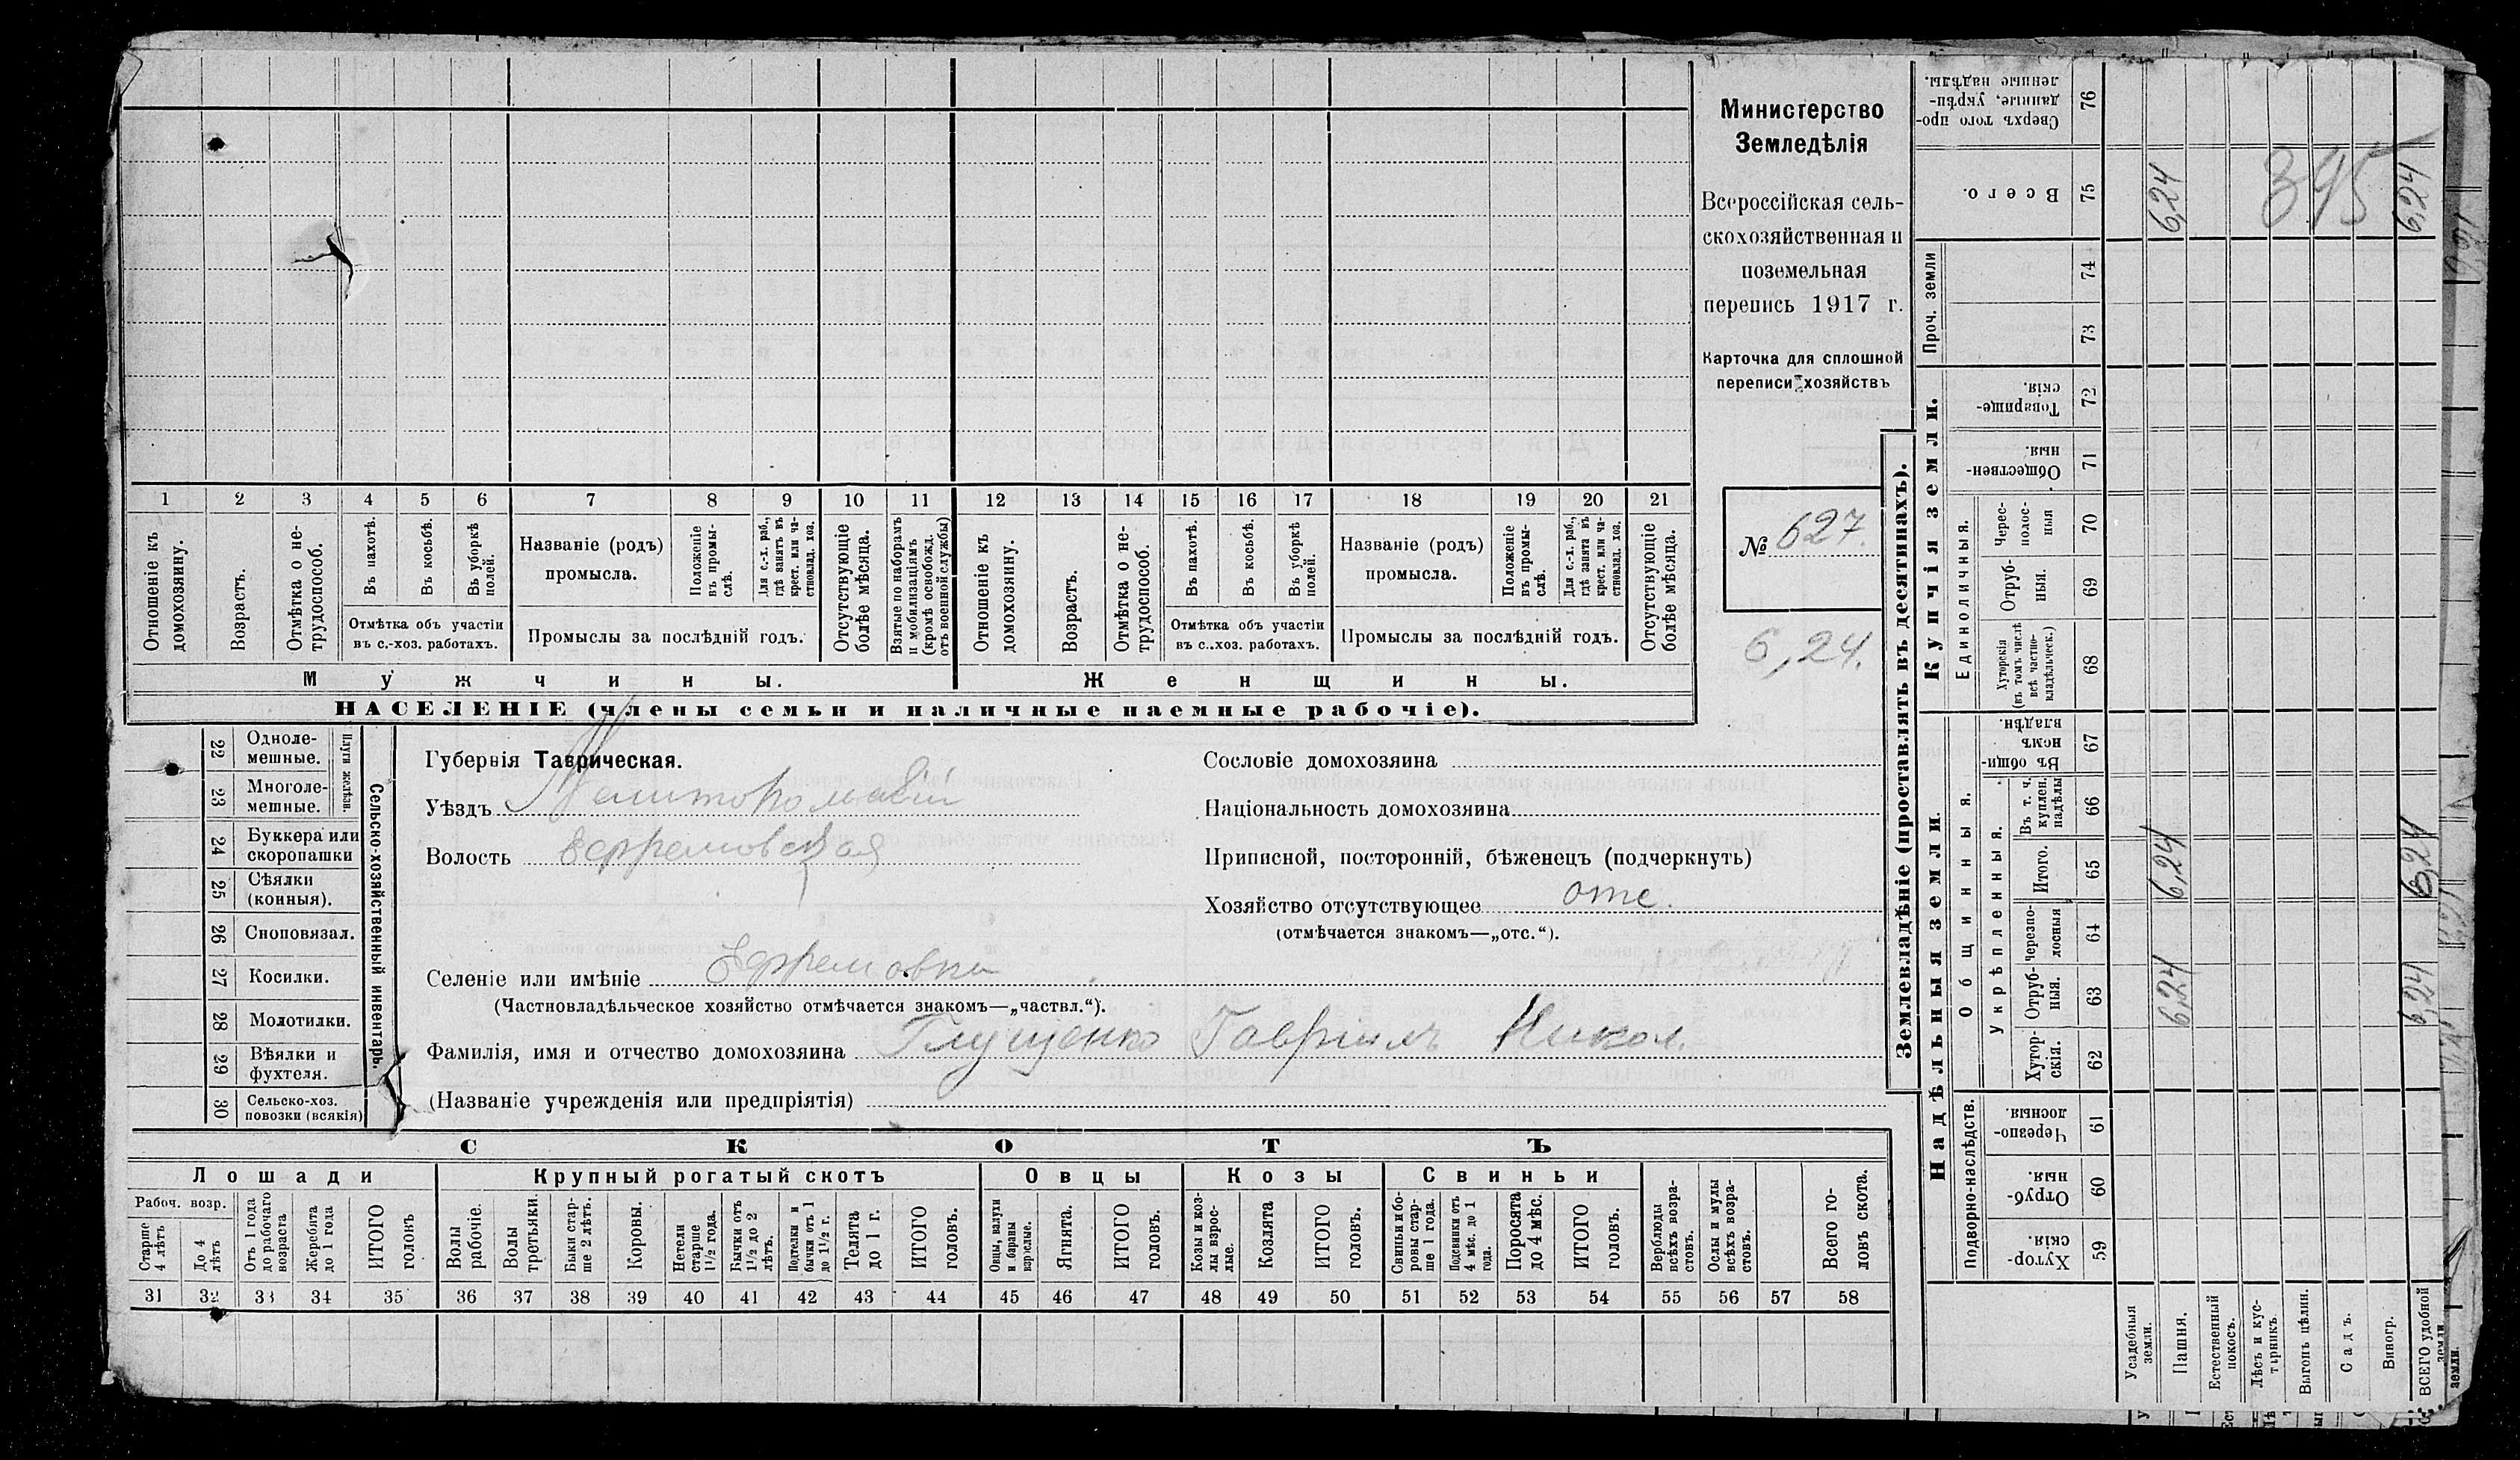 Министерство
Земледѣлія
Всероссійская сель-
скохозяйственная и
поземельная
перепись 1917 г.
Карточка для сплошной
переписи хозяйствъ
№ 627.
6,24.
1 2 3 4 5 6 7 8 9 10 11 12 13 14 15 16 17 18 19 20 21
Отношеніе къ домохозяину.
Возрастъ.
Отмѣтка о не-трудоспособ.
Въ пахотѣ.
Въ косьбѣ.
Въ уборкѣ полей.
Отмѣтка объ участіи
въ с.-хоз. работахъ.
Названіе (родъ)
промысла.
Положеніе въ промы-слѣ.
Для с.-х. раб., гдѣ занятъ въ крест. или ча-стновлад. хоз.
Промыслы за послѣдній годъ.
Отсутствующіе болѣе мѣсяца.
Взятые по наборамъ и мобилизаціямъ (кромѣ освобожд. отъ военной службы)
Отношеніе къ домохозяину.
Возрастъ.
Отмѣтка о не-трудоспособ.
Въ пахотѣ.
Въ косьбѣ.
Въ уборкѣ полей.
Отмѣтка объ участіи
въ с..хоз. работахъ.
Названіе (родъ)
промысла.
Положеніе въ промы-слѣ.
Для с.-х. раб., гдѣ занята въ крест. или ча-стновлад. хоз.
Промыслы за послѣдній годъ.
Отсутствующіе болѣе мѣсяца.
Мужчины.
Женщины.
НАСЕЛЕНІЕ (члены семьи и наличные наемные рабочіе).
22 Одноле-мешные.
23 Многоле-мешные.
Плуги желѣзн.
24 Буккера или скоропашки
25 Сѣялки (конныя).
26 Сноповязал.
27 Косилки.
28 Молотилки.
29 Вѣялки и фухтеля.
30 Сельско-хоз. повозки (всякія)
Сельско-хозяйственный инвентарь.
Губернія Таврическая.
Уѣздъ Мелитопольскій
Волость Ефремовская
Селеніе или имѣніе Ефремовка
(Частновладѣльческое хозяйство отмѣчается знакомъ—„частвл.“).
Фамилія, имя и отчество домохозяина Глущенко Гавріилъ Никол.
(Названіе учрежденія или предпріятія)
Сословіе домохозяина
Національность домохозяина
Приписной, посторонній, бѣженецъ (подчеркнуть)
Хозяйство отсутствующее отс.
(отмѣчается знакомъ—„отс.“).
СКОТЪ
Лошади
Крупный рогатый скотъ
Овцы
Козы
Свиньи
Рабоч. возр.
Старше 4 лѣтъ
До 4 лѣтъ
Отъ 1 года до рабочаго возраста
Жеребята до 1 года
ИТОГО головъ
Волы рабочіе.
Волы третьяки.
Быки стар-ше 2 лѣтъ.
Коровы.
Нетели старше 1½ года.
Бычки отъ 1½ до 2 лѣтъ.
Подтелки и бычки отъ 1 до 1½ г.
Телята до 1 г.
ИТОГО головъ.
Овцы, валухи и бараны взрослые.
Ягнята.
ИТОГО головъ.
Козы и коз-лы взрос-лые.
Козлята
ИТОГО головъ.
Свиньи и бо-ровы стар-ше 1 года.
Подсвинки отъ 4 мѣс. до 1 года.
Поросята до 4 мѣс.
ИТОГО головъ.
Верблюды всѣхъ возра-стовъ.
Ослы и мулы всѣхъ возра-стовъ.
Всего го-ловъ скота.
31 32 33 34 35 36 37 38 39 40 41 42 43 44 45 46 47 48 49 50 51 52 53 54 55 56 57 58
Землевладѣніе (проставлять въ десятинахъ).
Надѣльныя земли.
Купчія земли.
Проч. земли
Подворно-наслѣдств.
Общинныя.
Укрѣпленныя.
Единоличныя.
Хутор-скія. 59
Отруб-ныя. 60
Черезпо-лосныя 61
Хутор-скія. 62
Отруб-ныя. 63 6,24 6,24
Черезпо-лосныя 64
Итого. 65 6,24 6,24
Въ т. ч. куплен. надѣлы 66
Въ общин-номъ владѣн. 67
Хуторскія (въ томъ числѣ всѣ частно-владѣльческ.) 68
Отруб-ныя. 69
Черес-полос-ныя 70
Обществен-ныя. 71
Товарище-скія. 72
73
74
Всего. 75 6,24 6,24
395
Сверхъ того про-данные, укрѣп-ленные надѣлы. 76
Усадебныя земли.
Пашня.
Естественный покосъ.
Лѣсъ и кус-тарникъ.
Выгонъ цѣлин.
Садъ.
Виногр.
ВСЕГО удобной земли